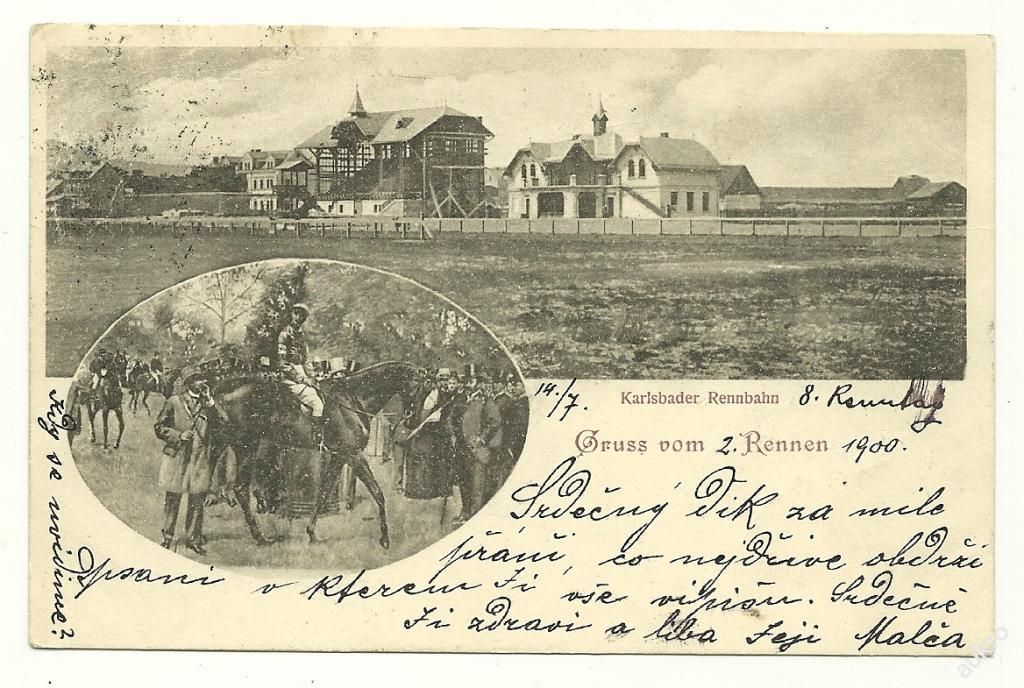 14./7. Karlsbader Rennbahn 8. Renntag
Gruss vom 2. Rennen 1900.
Srdečný Dik za milé
přáni, co nejdřive obdrži
Psani v kterem Ji vše vipišu. Srdečné
Ji zdravi a liba Jeji Malča
Kdy se uvidime?
aukro